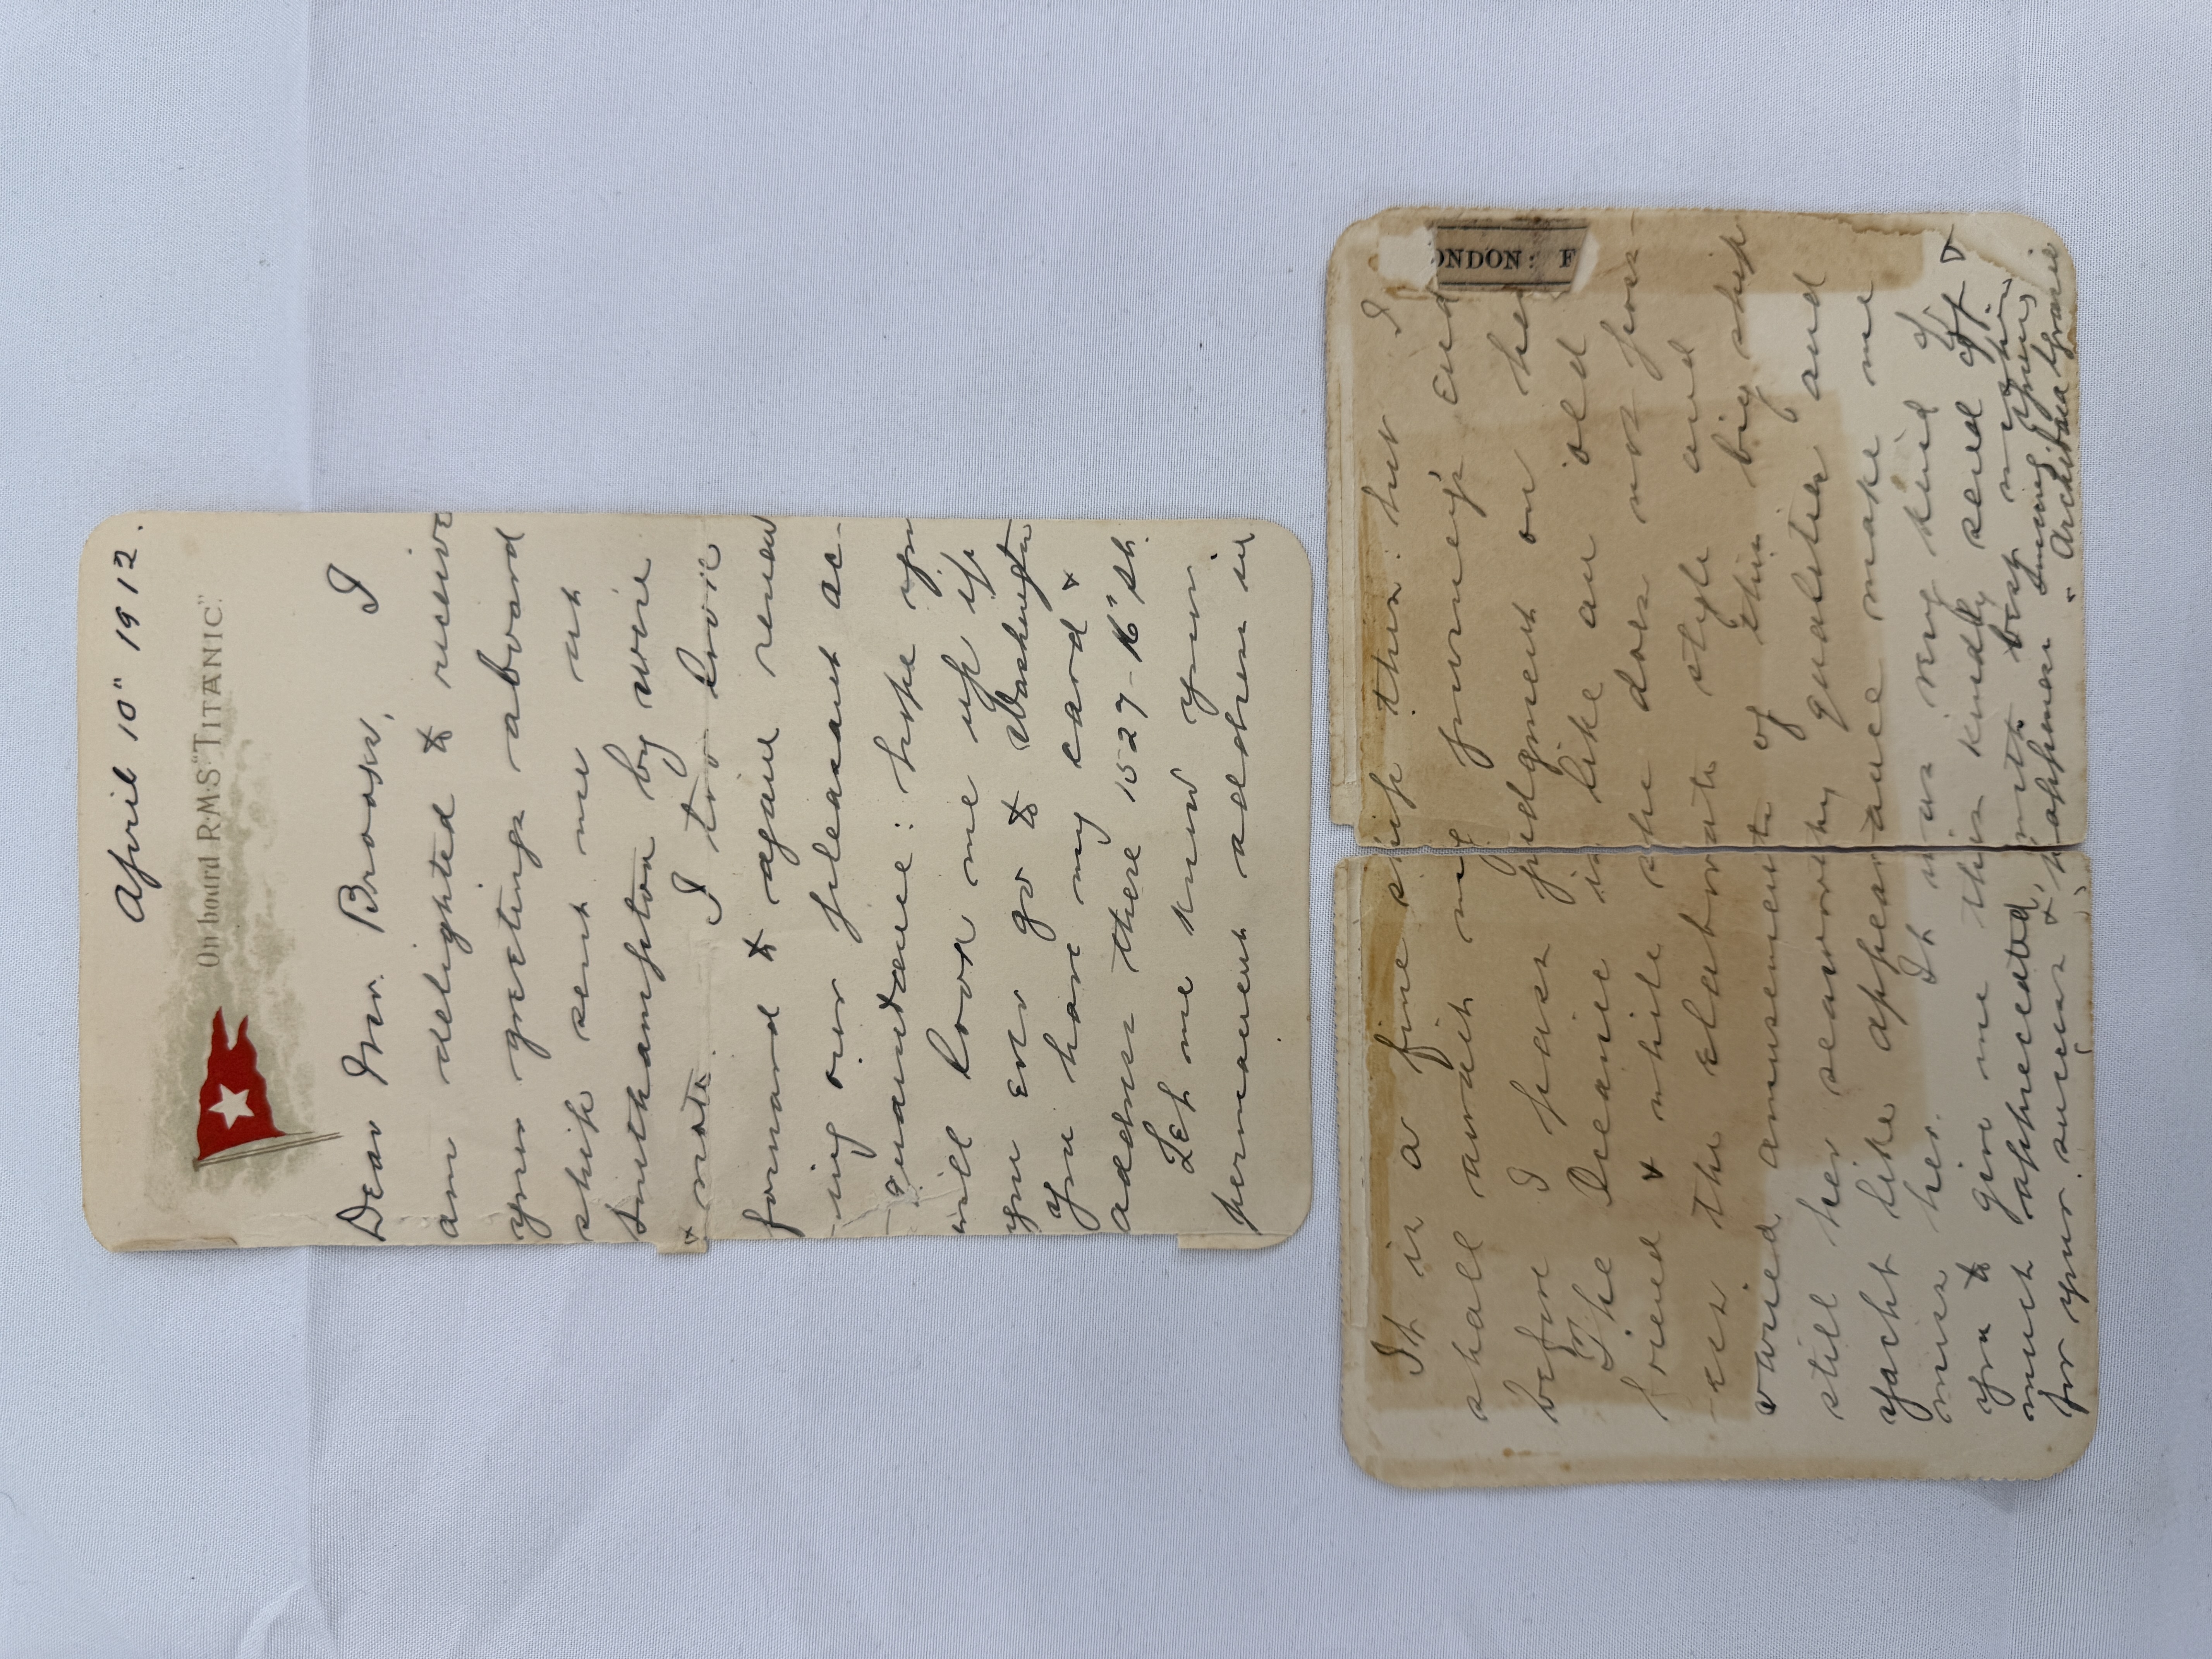 April 10" 1912.
On board R.M.S. "TITANIC".
Dear Mr. Brooks, I
am delighted to receive
your greetings aboard
ship sent me at
Southampton by wire
& note. I too look
forward to again renew
-ing our pleasant ac-
quaintance: hope you
will look me up if
you ever go to Washington
you have my card &
address there 1527-16" St.
Let me know your
permanent address in
It is a fine ship this: but I
shall await my journey's end
before I pass judgment on her
The Oceanic is like an old
friend & while she does not poss-
-ess the elaborate style and
varied amusements of this big ship
still her seaworthy qualities and
yacht like appearance make me
miss her. It was very kind of
you to give me this kindly send off &
much appreciated, with best wishes
for your success & happiness
Archibald Gracie
ONDON: F